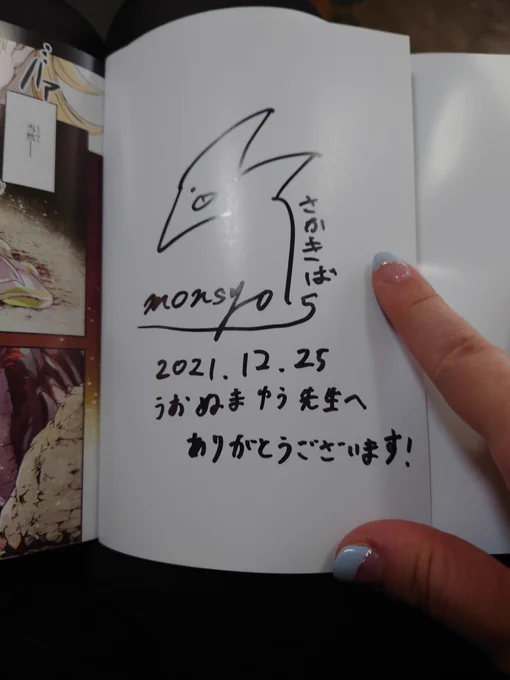 バァ
さかきばら
monsyo
2021.12.25
うおぬまゆう先生へ
ありがとうございます!